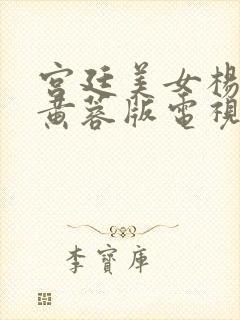 宮廷美女楊
黃蓉版電視
李寶庫